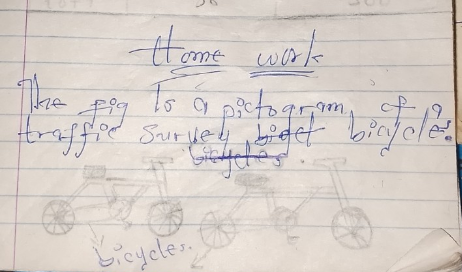 Home work
The fig is a pictogram of a
traffic survey bicycle.
bicycles.
bicycles.